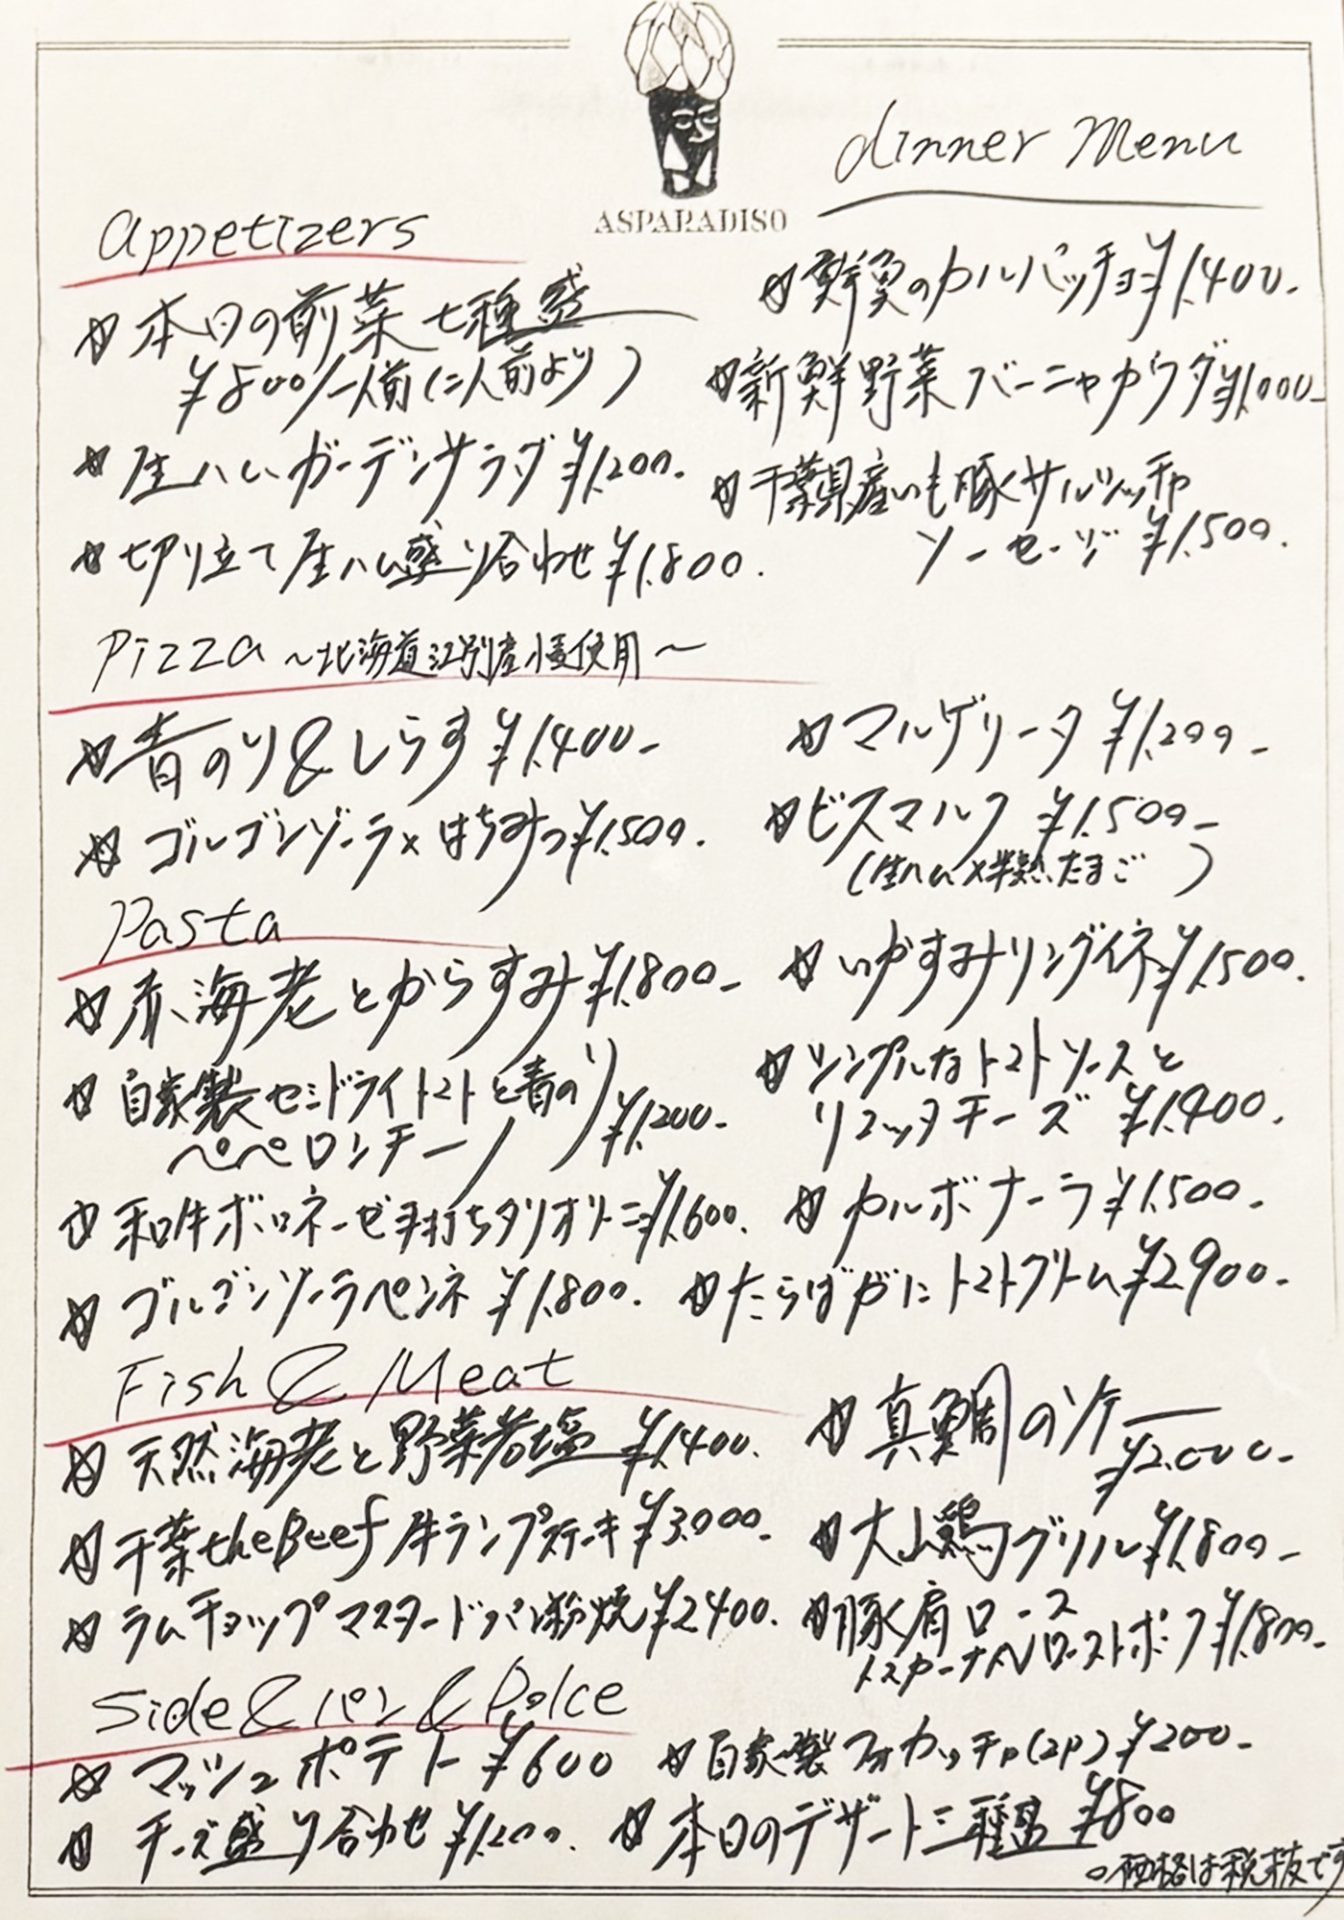 ASPARADISO
dinner Menu
appetizers
☆本日の前菜七種盛
¥800/一人前(二人前より)
☆生ハムガーデンサラダ¥1,200-
☆切り立て生ハム盛り合わせ¥1,800.
☆鮮魚のカルパッチョ¥1,400-
☆新鮮野菜バーニャカウダ¥1,000-
☆千葉県産いも豚サルシッチャ
ソーセージ¥1,500.
Pizza ～北海道江別産小麦使用～
☆青のり&しらす¥1,400-
☆ゴルゴンゾーラ×はちみつ¥1,500.
☆マルゲリータ¥1,200-
☆ビスマルク¥1,500-
(生ハム×半熟たまご)
Pasta
☆赤海老とからすみ¥1,800-
☆自家製セミドライトマトと青のり
ペペロンチーノ¥1,200-
☆和牛ボロネーゼ手打ちタリオリーニ¥1,600.
☆ゴルゴンゾーラペンネ¥1,800.
☆いかすみリングイネ¥1,500.
☆シンプルなトマトソースと
リコッタチーズ¥1,400.
☆カルボナーラ¥1,500-
☆たらばがにトマトクリーム¥2,900-
Fish & Meat
☆天然海老と野菜岩塩¥1,400.
☆千葉the Beef牛ランプステーキ¥3,000.
☆ラムチョップマスタードパン粉焼¥2,400.
☆真鯛のソテー
¥2,000-
☆大山鶏グリル¥1,800-
☆豚肩ロース
トスカーナ風ローストポーク¥1,800-
Side & パン & Dolce
☆マッシュポテト¥600
☆チーズ盛り合わせ¥1,200.
☆自家製フォカッチャ(2P)¥200-
☆本日のデザート三種盛¥800
○価格は税抜です